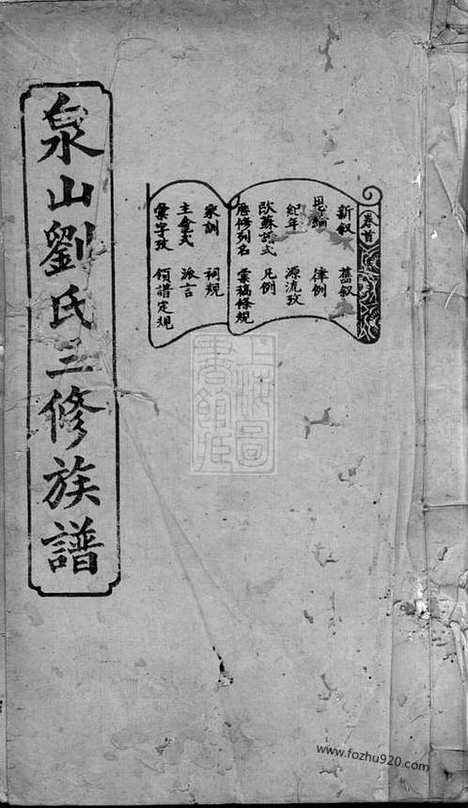 泉山劉氏三修族譜
卷首
新叙 舊叙
恩綸 律例
紀年 源流攷
欧蘇譜式 凡例
歷修列名 彙稿條規
家訓 祠規
主會式 派言
彙字攷 領譜定規
上海圖書館藏
www.fozhu920.com